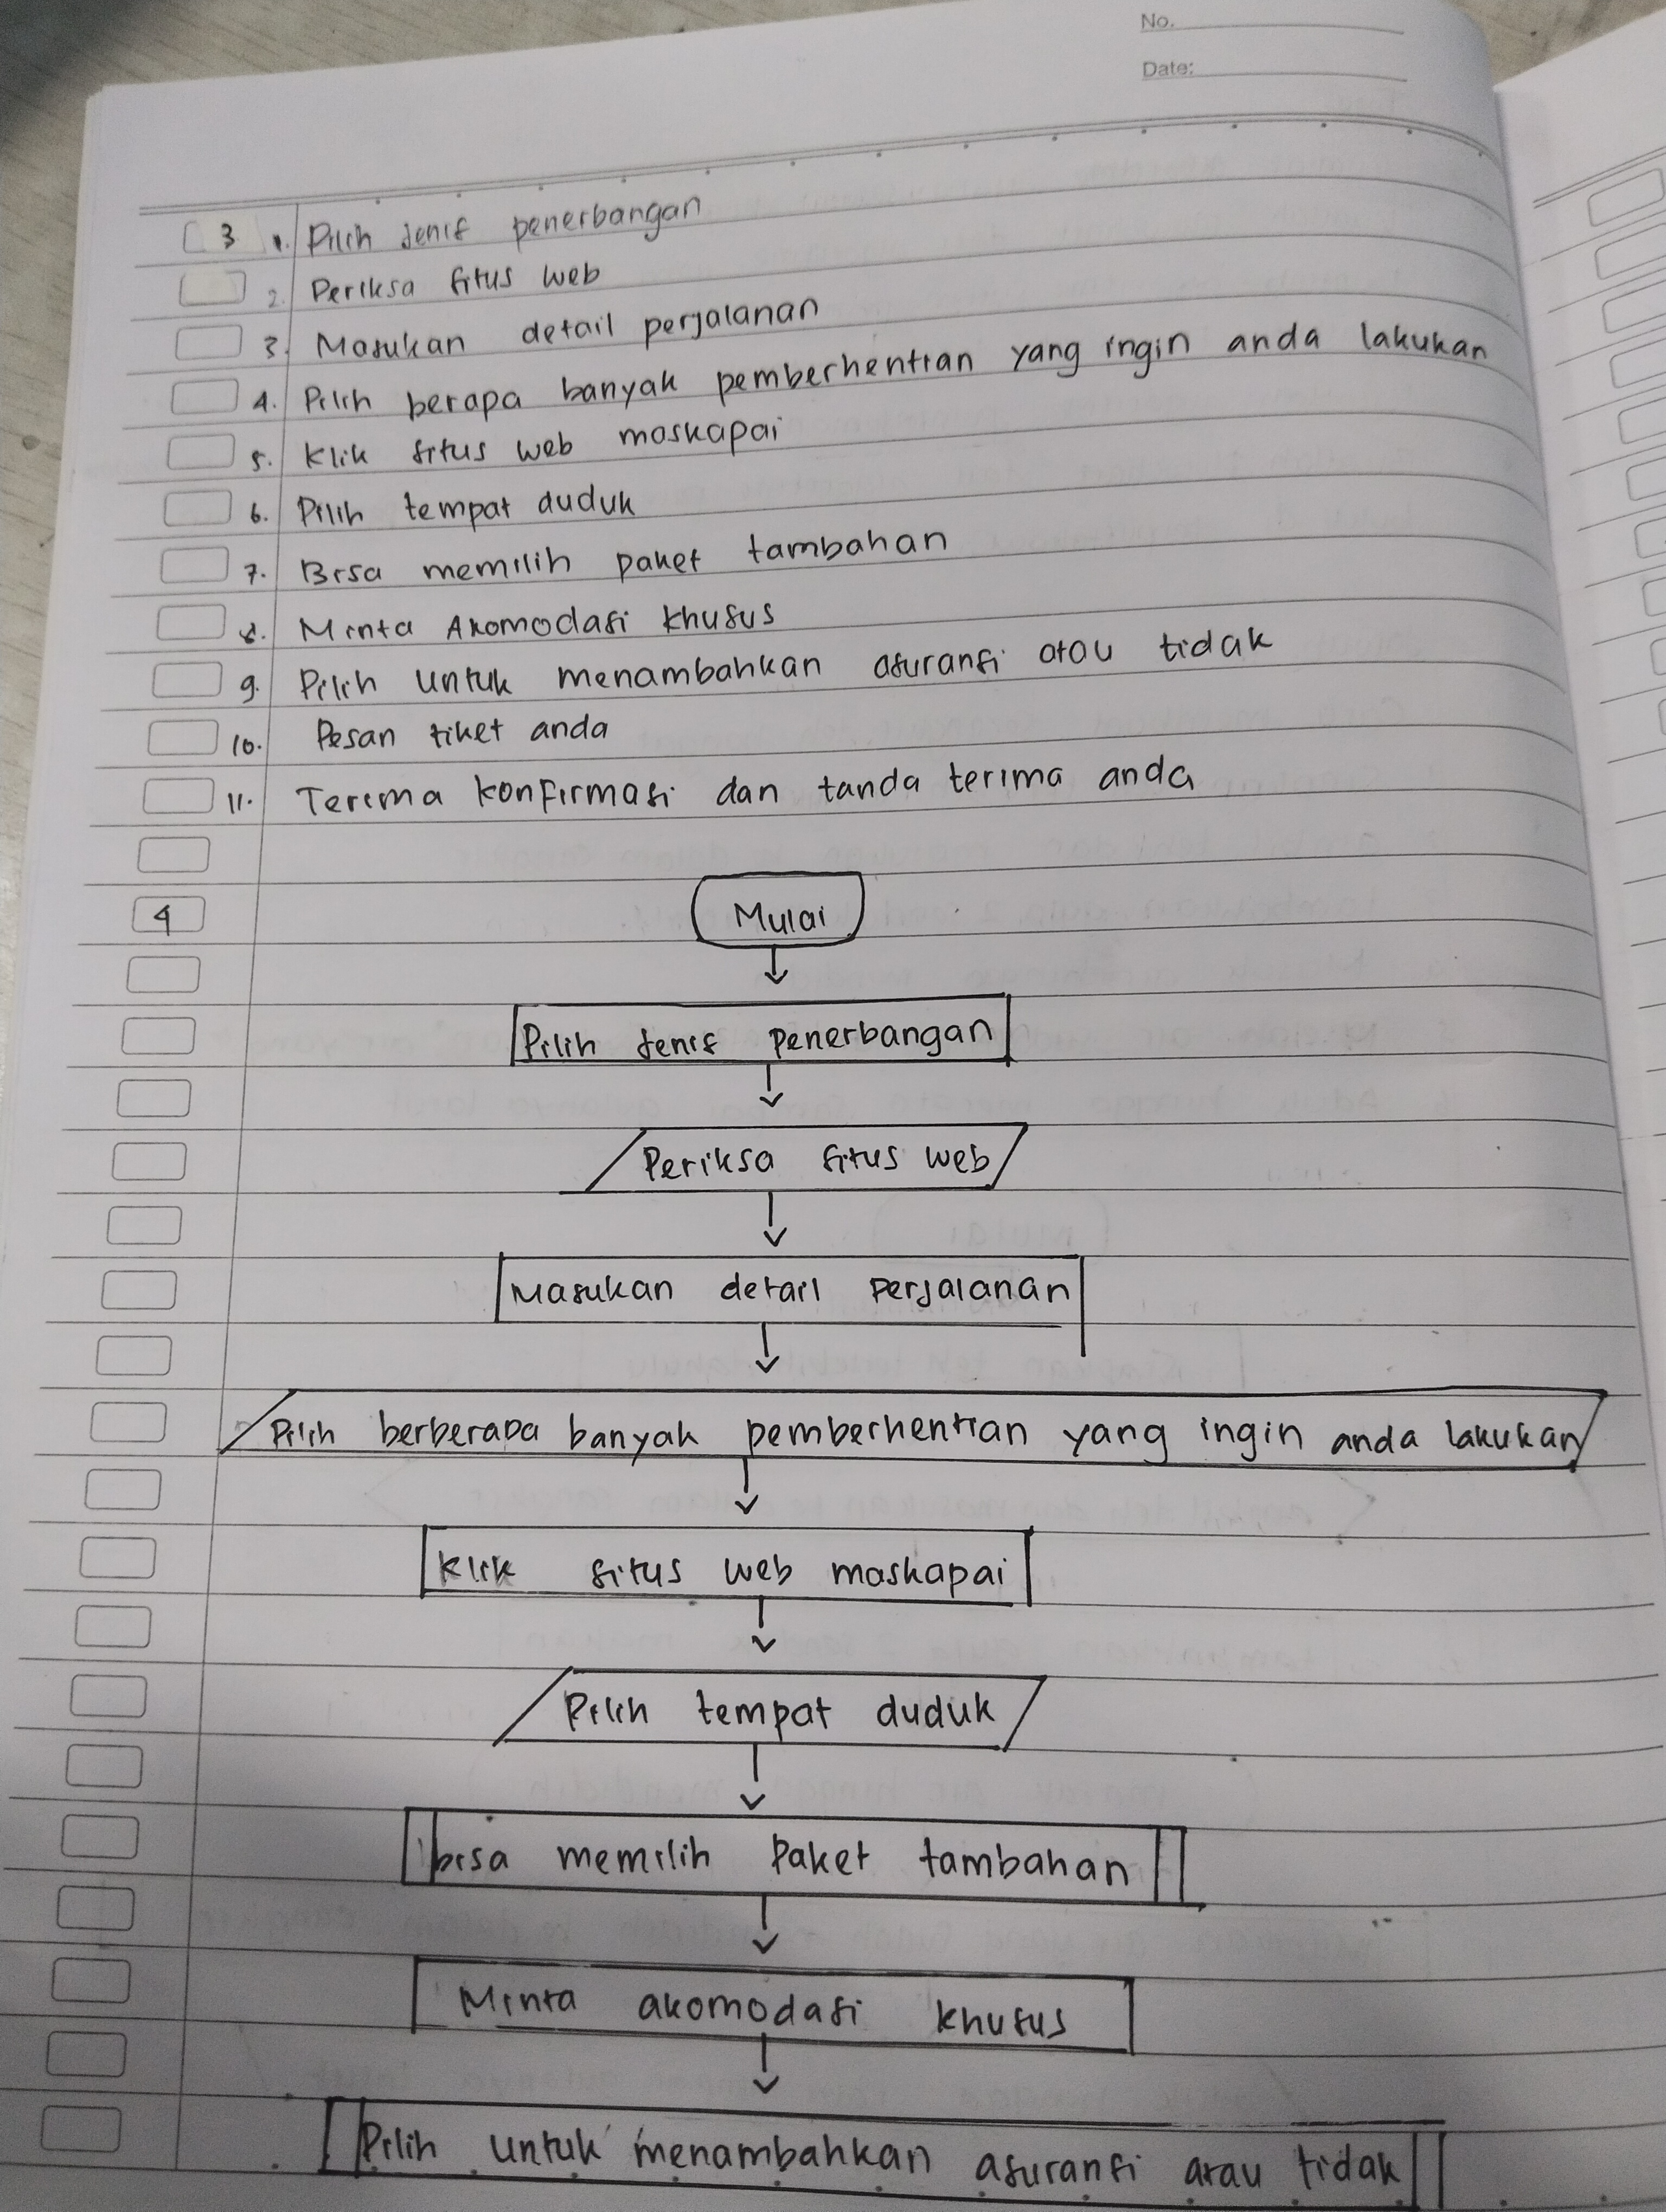 No.
Date:
3 1. Pilih Jenis penerbangan
2. Periksa situs web
3. Masukan detail perjalanan
4. Pilih berapa banyak pemberhentian yang ingin anda lakukan
5. Klik situs web maskapai
6. Pilih tempat duduk
7. Bisa memilih paket tambahan
8. Minta Akomodasi khusus
9. Pilih untuk menambahkan asuransi atau tidak
10. Pesan tiket anda
11. Terima konfirmasi dan tanda terima anda
4 Mulai
Pilih Jenis Penerbangan
Periksa situs web
Masukan detail Perjalanan
Pilih berberapa banyak pemberhentian yang ingin anda lakukan
Klik situs web maskapai
Pilih tempat duduk
bisa memilih Paket tambahan
Minta akomodasi khusus
Pilih untuk menambahkan asuransi atau tidak